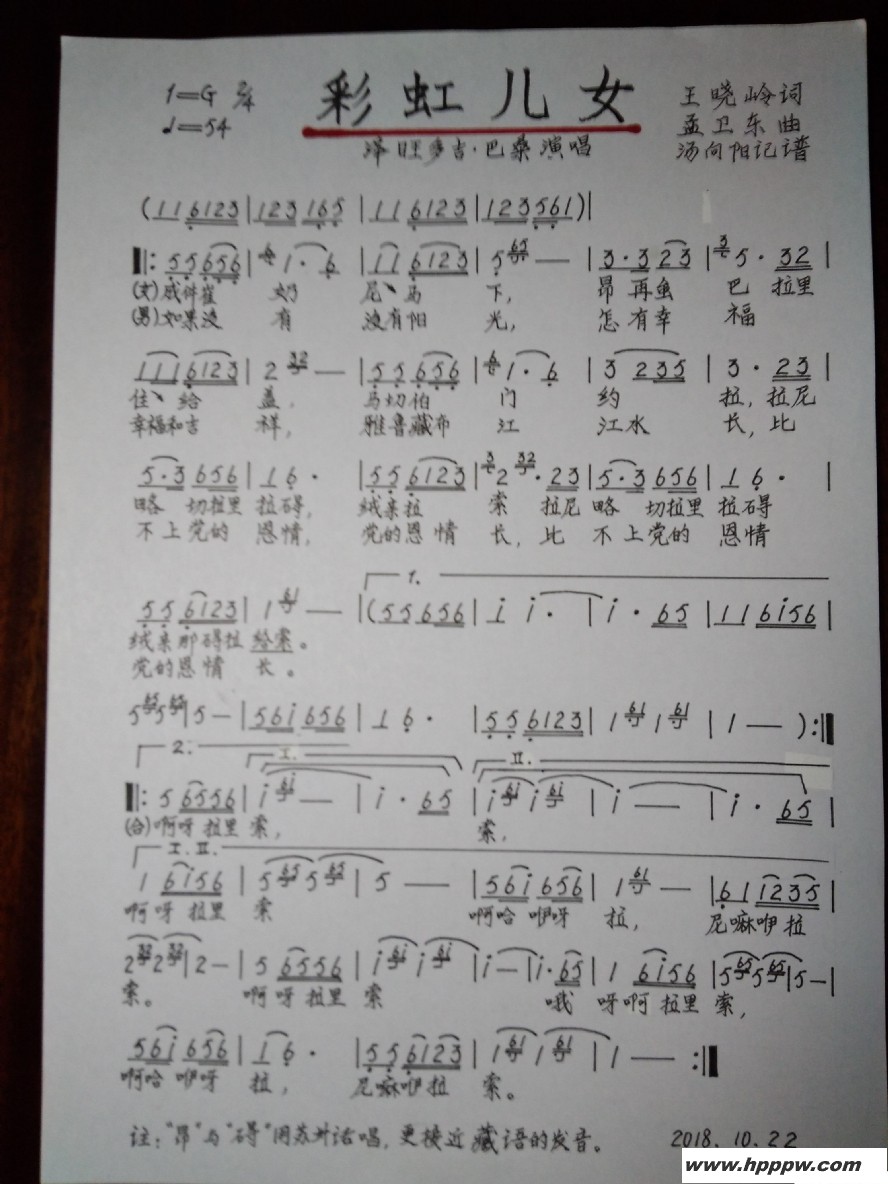 1=G 2/4
♩=54
彩虹儿女
王晓岭词
孟卫东曲
汤向阳记谱
泽旺多吉·巴桑演唱
(1 1 6123|123 165|1 1 6123|123561)|
‖:5 5 656|6 1·6|1 1 6123|5 65 —|3·3 23|3 5·32|
(女)感件崔 奶 尼、马 下, 昂再鱼 巴 拉里
(男)如果没 有 没有阳 光, 怎有幸 福
111 6123|2 32 —|5 5 656|6 1·6|3 235|3·23|
住、给 盖, 马切伯 门 约 拉,拉尼
幸福和吉 祥, 雅鲁藏布 江 江水 长,比
5·3 656|1 6·|5 5 6123|3 2 32·23|5·3 656|1 6·|
略 切拉里 拉碍, 绒来拉 索 拉尼 略 切拉里 拉碍
不上党的 恩情, 党的恩情 长,比 不上党的 恩情
1.
5 5 6123|1 61 —|(5 5 656|i i·|i·65|1 1 6i56|
绒来那碍拉 给索。
党的恩情 长。
5 65 5 65|5 —|56i 656|1 6·|5 5 6123|1 61 1 61|1 —):‖
2. I. II.
‖:5 6556|i 6i —|i·65|i 6i i 6i|i —|i·65|
(合)啊呀 拉里 索, 索,
I.II.
1 6i56|5 65 5 65|5 — —|56i 656|1 61 —|61 1235|
啊呀 拉里 索 啊哈 咿呀 拉, 尼嘛咿拉
2 32 2 32|2 —|5 6556|i 6i i 6i|i —|i·65|1 6i56|5 65 5 65|5 —|
索。 啊呀 拉里 索 哦 呀啊 拉里 索,
56i 656|1 6·|5 5 6123|1 61 1 61|1 — :‖
啊哈 咿呀 拉, 尼嘛咿拉 索。
注:"昂"与"碍"用苏州话唱,更接近藏语的发音。 2018.10.22
www.hpppw.com